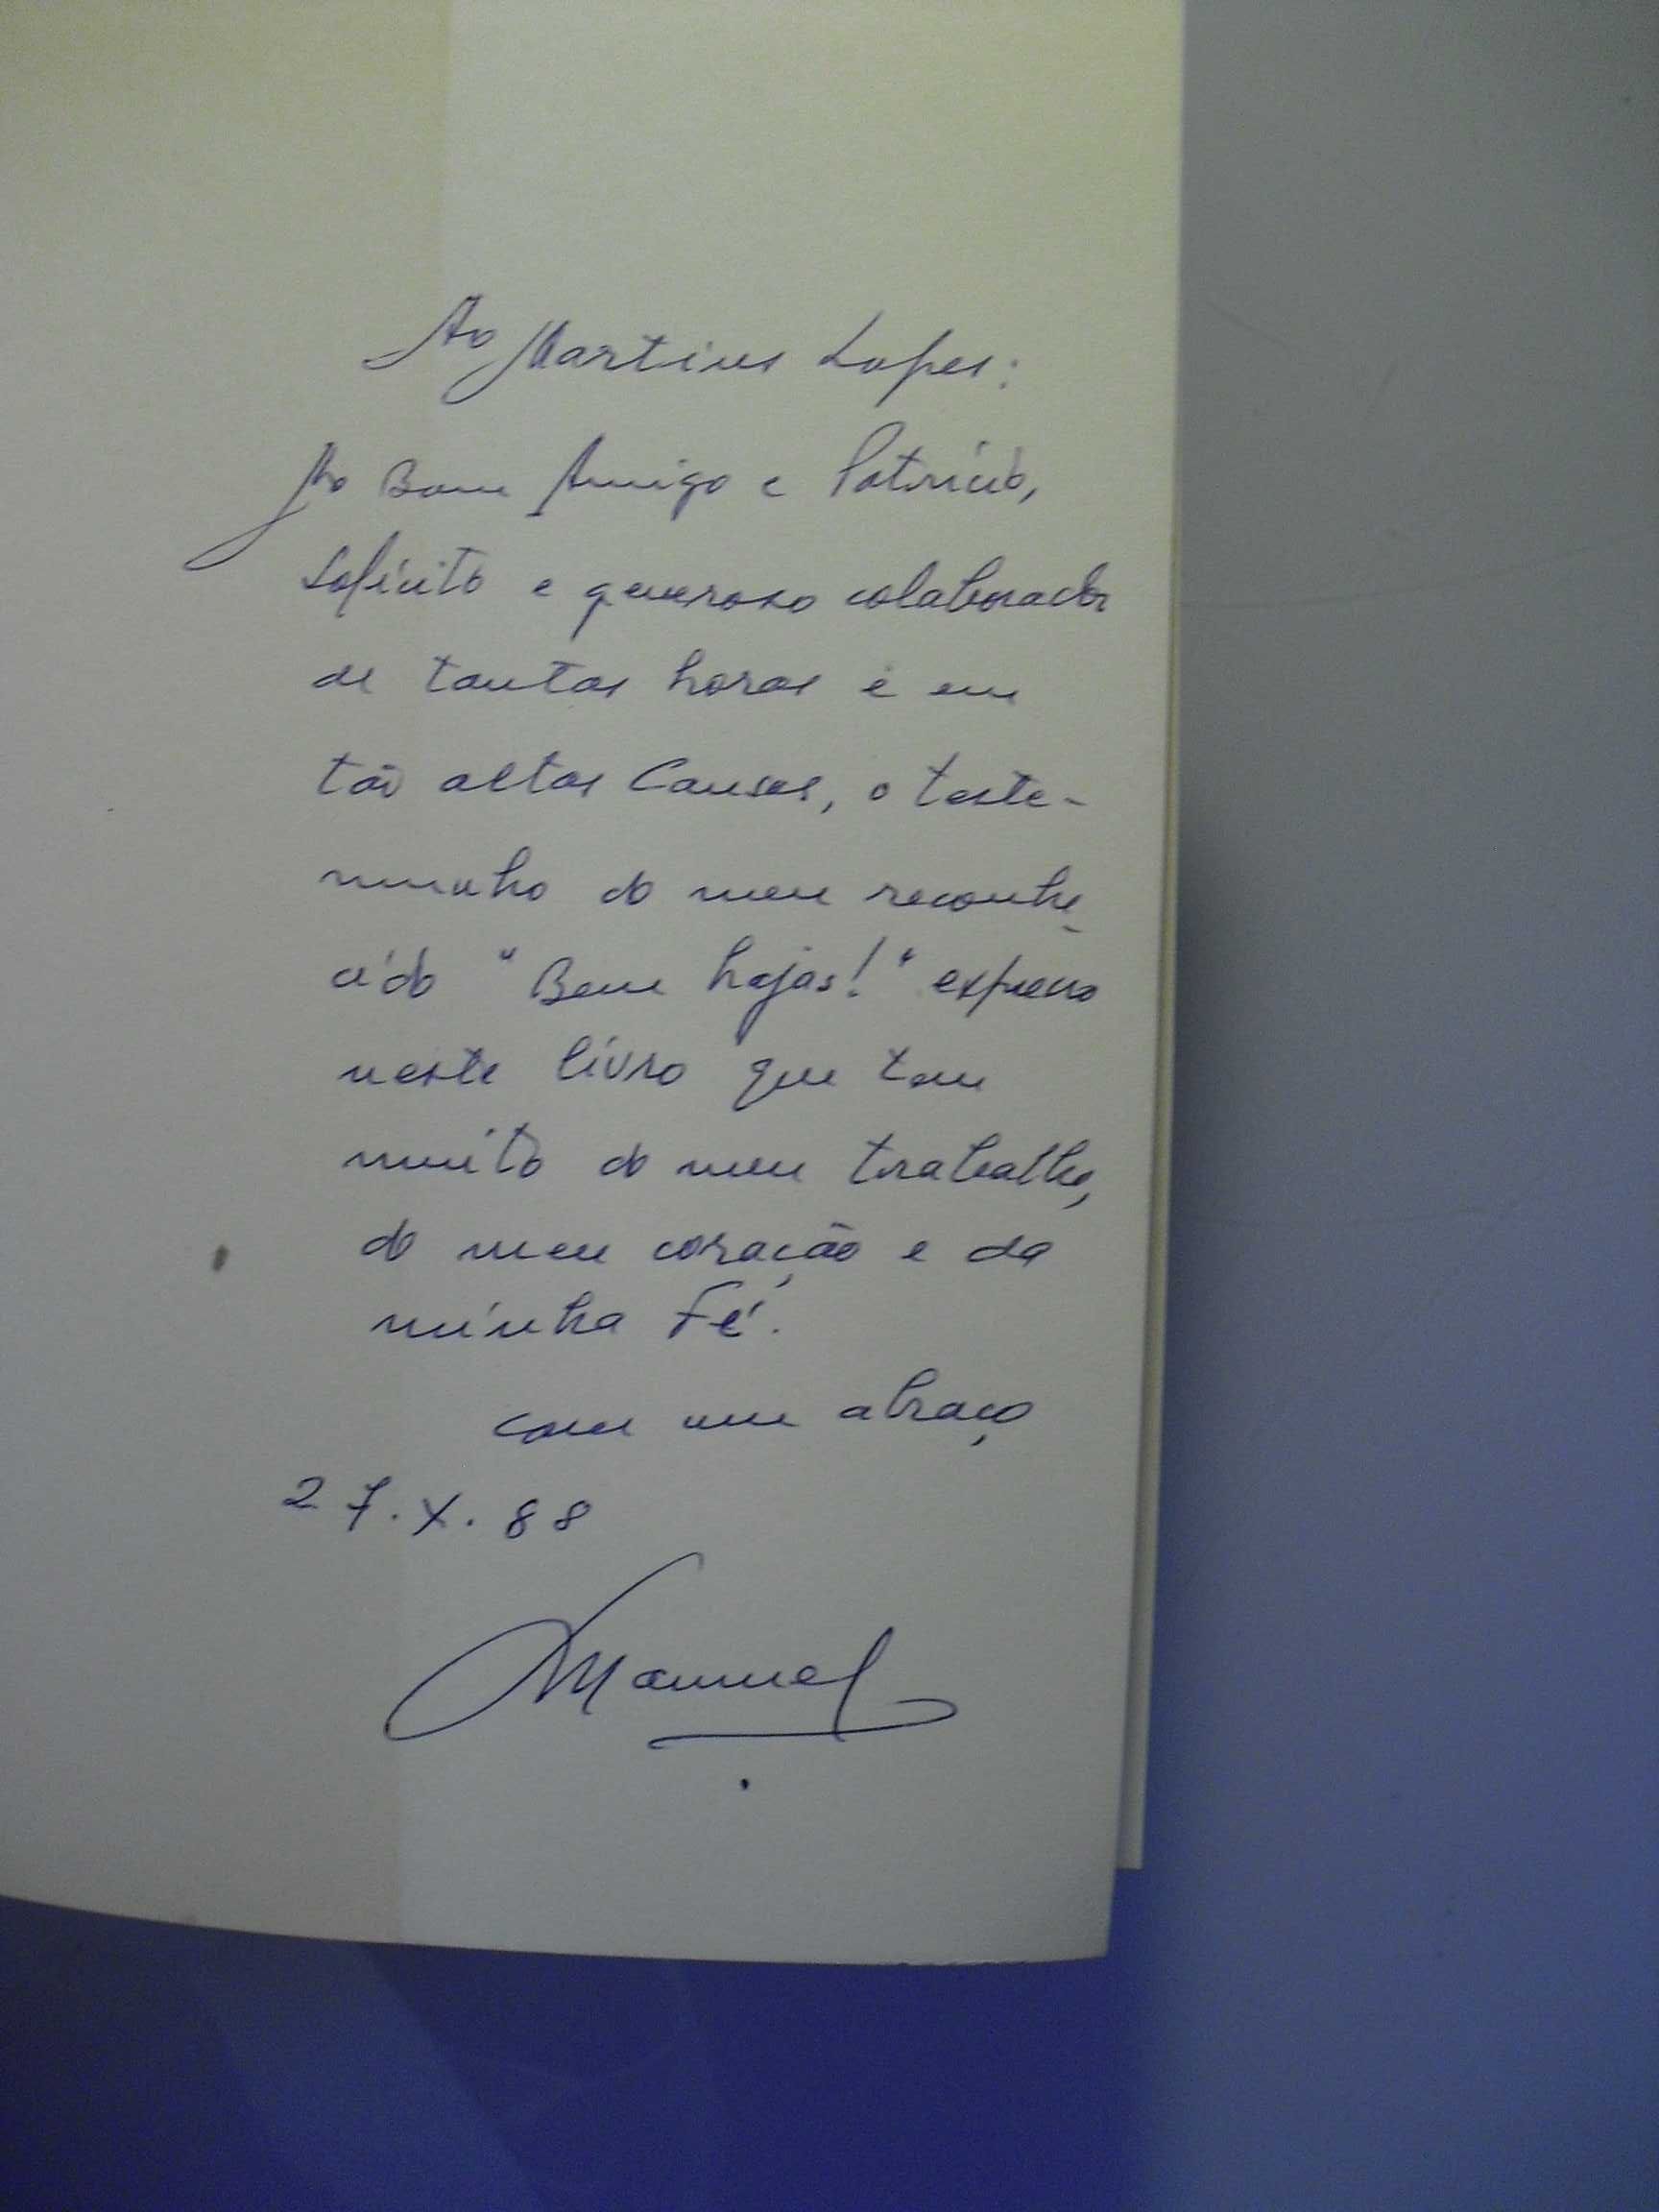 Ao Martins Lopes:
Ao Bom Amigo e Patrício,
Solícito e generoso colaborador
de tantas horas e em
tão altas Causas, o teste-
munho do meu reconhe-
cido "Bem hajas!" expresso
neste livro que tem
muito do meu trabalho,
do meu coração e da
minha Fé.
com um abraço
27.X.88
Manuel